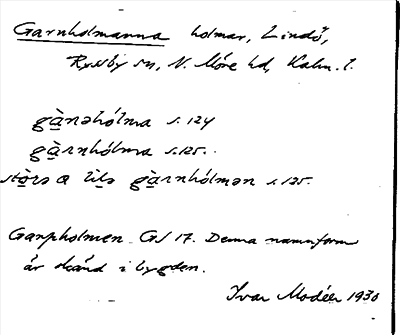 Garnholmanna holmar, Lindö,
Ryssby sn, N. Möre hd, Kalm. l.
gà̠nəhólma s. 124
gà̠rnhólma s. 125.
stò̠rə a lìl̠ə gà̠rnhólmən s. 125.
Garpholmen GS 17. Denna namnform
är okänd i bygden.
Ivar Modéer 1930